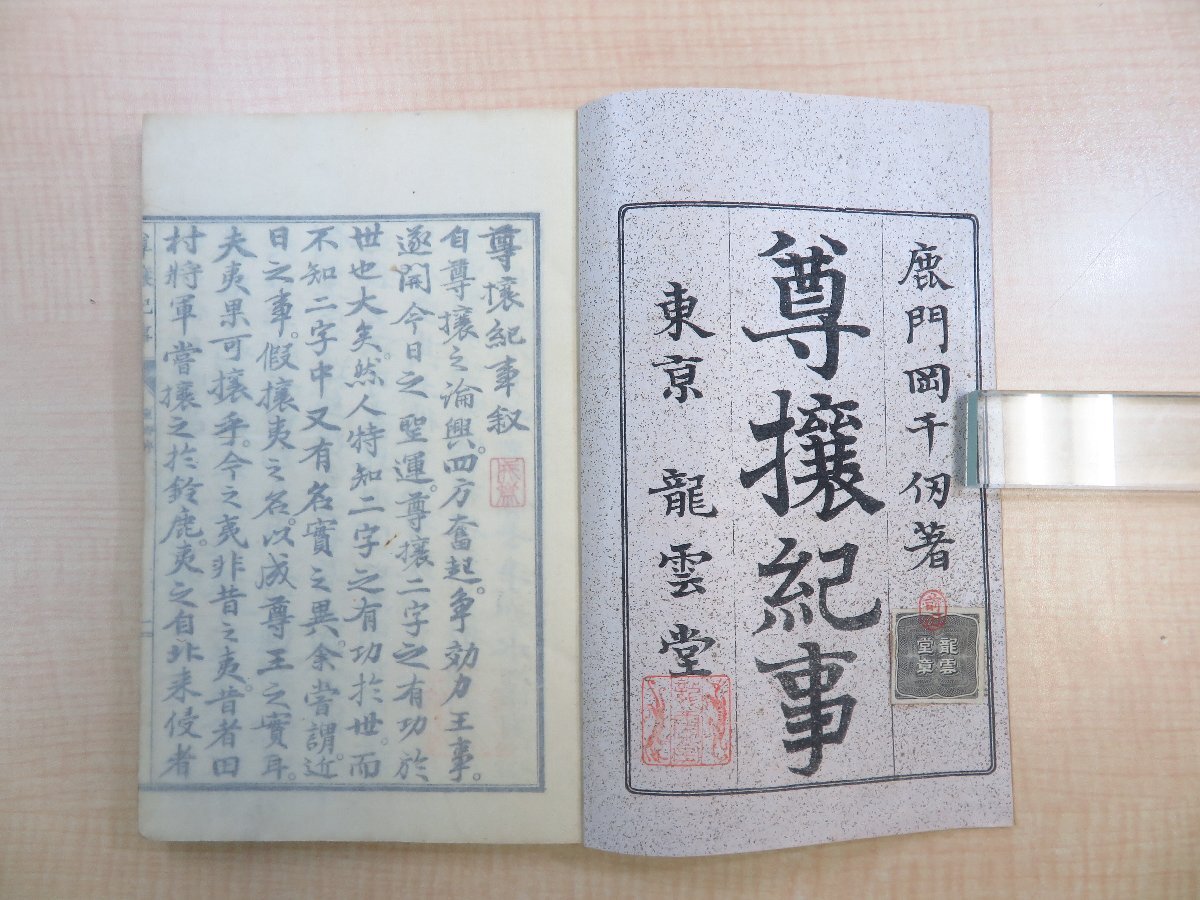 鹿門岡千仞著
尊攘紀事
東亰 龍雲堂
龍雲堂章
尊攘紀事叙
自尊攘之論興。四方奮起。争効力王事。
遂開今日之聖運。尊攘二字之有功於
世也大矣。然人特知二字之有功於世。而
不知二字中又有名實之異。余嘗謂。近
日之事。假攘夷之名。以成尊王之實耳。
夫夷果可攘乎。今之夷非昔之夷。昔者田
村將軍嘗攘之於鈴鹿。夷之自北来侵者